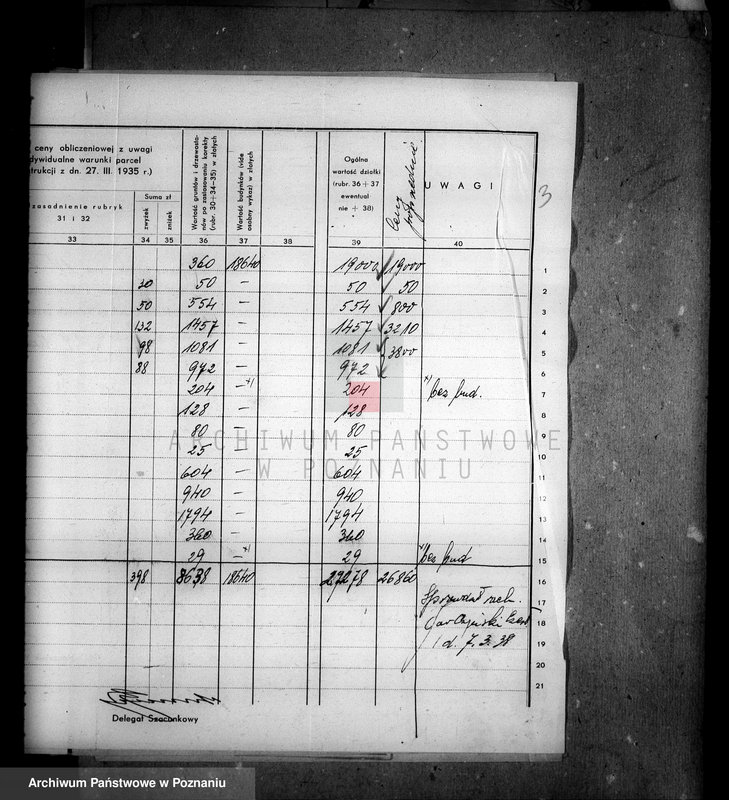 3
ceny obliczeniowej z uwagi
dywidualne warunki parcel
trukcji z dn. 27. III. 1935 r.)
zasadnienie rubryk
31 i 32
Suma zł
zwyżek
zniżek
Wartość gruntów i drzewosta-
nów po zastosowaniu korekty
(rubr. 30+34-35) w złotych
Wartość budynków (vide
osobny wykaz) w złotych
Ogólna
wartość działki
(rubr. 36 + 37
ewentual
nie + 38)
Ceny
UWAGI
33 34 35 36 37 38 39 40
360 18640 19000 19000 1
50 50 50 2
50 554 — 554 800 3
132 1457 — 1457 3210 4
98 1081 — 1081 3800 5
88 972 — 972 6
204 — x) 204 x) bez bud. 7
128 — 128 8
80 — 80 9
25 — 25 10
604 — 604 11
940 — 940 12
1794 — 1794 13
360 — 360 14
29 — x) 29 x) bez bud 15
398 8638 18640 27278 26860 16
17
18
d. 7.3.38 19
20
21
Delegat Szacunkowy
ARCHIWUM PAŃSTWOWE
W POZNANIU
Archiwum Państwowe w Poznaniu